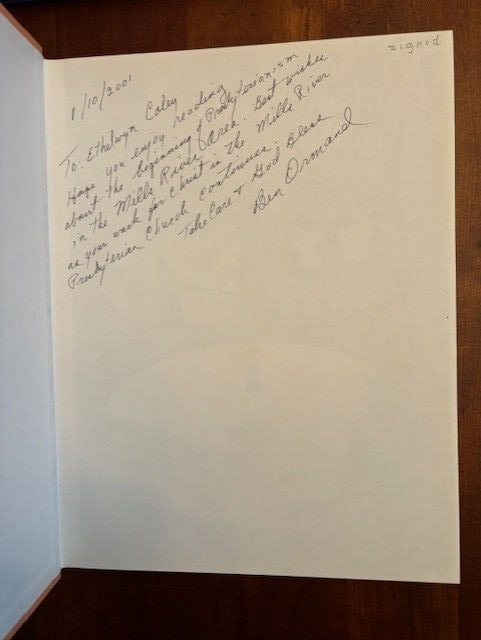 signed
1/10/2001
To: Ethelwyn Coley
Hope you enjoy reading
about the beginning of Presbyterianism
in the Mills River area. Best wishes
as your work for Christ in the Mills River
Presbyterian Church continues.
Take Care & God Bless
Ben Ormand